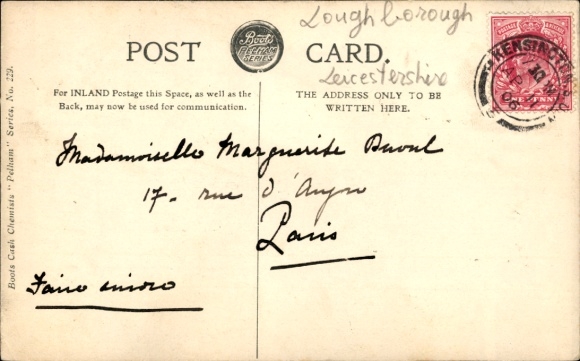 Loughborough
POST CARD.
Boots
PELHAM
SERIES
Leicestershire
For INLAND Postage this Space, as well as the
Back, may now be used for communication.
THE ADDRESS ONLY TO BE
WRITTEN HERE.
KENSINGTON
Mademoiselle Marguerite
17- rue d'Anjou
Paris
Faire suivre
Boots Cash Chemists "Pelham" Series, No. 229.